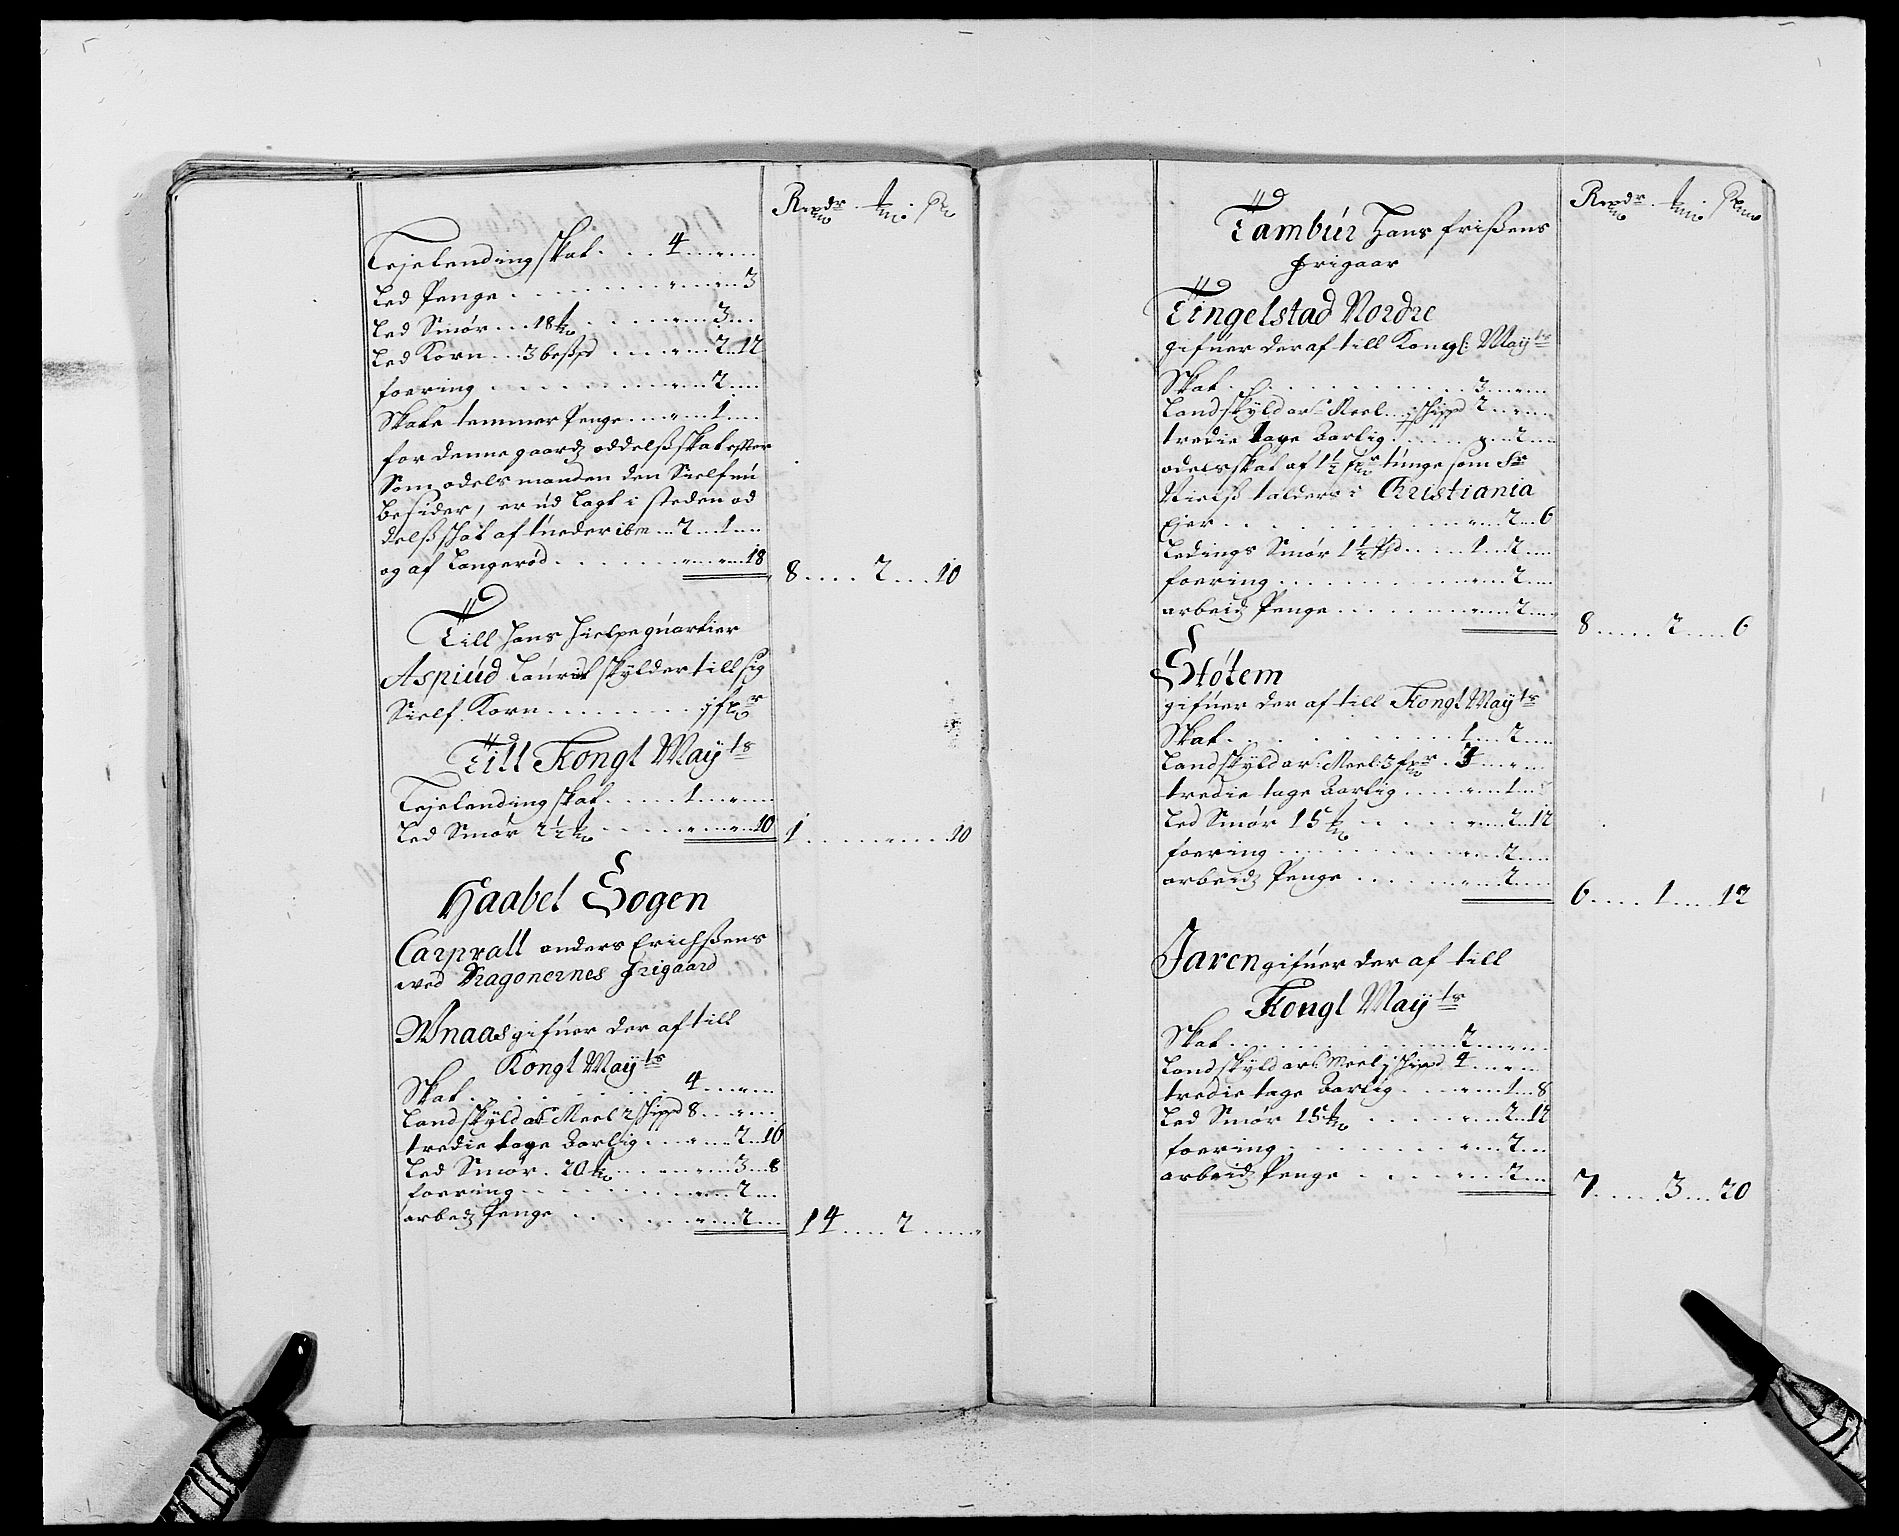 Rixdr. ℔. ß
Tejelending skat . . . 4 . . " . .
Led Penge . . . . . . . " . . " . . 3
Led Smør . . . 18 ℔ . . . . " . . 3 . .
Led Korn . . . 3 beßpd . . . " . . 2 . . 12
foering . . . . . . . . " . . 2 . .
Skate temmer Penge . . . " . . 1 . .
for denne gaardz oddelß skat efter
Som odels manden den Sielf nu
besider, er ud lagt i steden od
delß skat af tueder ibm . . . 2 . . 1 . .
og af Langerød . . . . . . " . . " . . 18 8 . . . . 2 . . . 10
Till hans hielpe quartier
Aspiud Laurits skylder till sig
Sielf Korn . . . . . . . j fr
Till Kongl Mayts
Tejelending skat . . . . . 1 . . " . .
Led Smør 2½ ℔ . . . . " . . " . . 10 1 . . . . " . . . 10
Haabel Sogen
Carprall anders Erichßens
wed Dragonernes frigaard
Wnaas gifuer der af till
Kongl Mayts
Skat . . . . . . . . 4 . . " . .
Landskyld ar: Meel 2 shippd 8 . . " . .
tredie tage Aarlig . . . " . . 2 . . 16
Led Smør . 20 ℔ . . . " . . 3 . . 8
foering . . . . . . . " . . 2 . .
arbeidz Penge . . . . . " . . 2 . . 14 . . . . 2 . . . . "
Rixdr. ℔. ß
Tambúr Hans frißens
frigaar
Tingelstad Nordre
gifuer der af till Kongl: Mayts
Skat . . . . . . . . . 3 . . " . .
Landskyld ar: Meel . . . j shippd 2 . . " . .
tredie tage Aarlig . . . . " . . 2 . .
odels skat af 1½ fr tunge som Sr
Nielß talder i Christiania
Ejer . . . . . . . . . " . . 2 . . 6
Ledings Smør 1½ pd . . . . 1 . . 2 . .
foering . . . . . . . . " . . 2 . .
arbeidz Penge . . . . . . " . . 2 . . 8 . . . . . 2 . . . . 6
Støtem
gifuer der af till Kongl Mayts
Skat . . . . . . . . . 1 . . 2 . .
Landskyld ar: Meel: 3 fr . 3 . . " . .
tredie tage Aarlig . . . . " . . 1 . .
Led Smør 15 ℔ . . . . " . . 2 . . 12
foering . . . . . . . . " . . 2 . .
arbeidz Penge . . . . . " . . 2 . . 6 . . . . 1 . . . . 12
Jaren gifuer der af till
Kongl Mayts
Skat . . . . . . . . . 2 . . " . .
Landskyld ar: Meel j shipd 4 . . " . .
tredie tage Aarlig . . . " . . 1 . . 8
Led Smør 15 ℔ . . . . " . . 2 . . 12
foering . . . . . . . " . . 2 . .
arbeidz Penge . . . . . " . . 2 . . 7 . . . . . 3 . . . 20